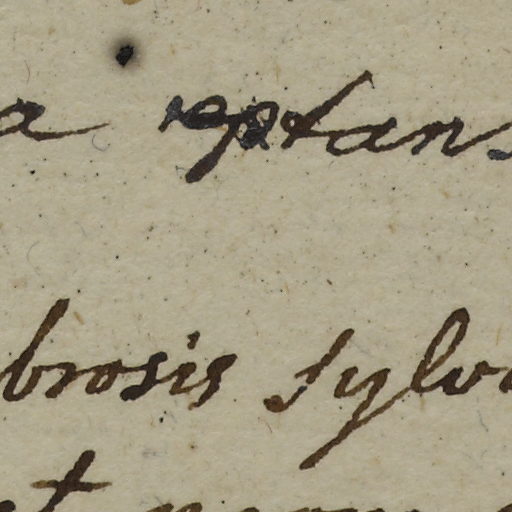 a reptans
brosis sylva
et